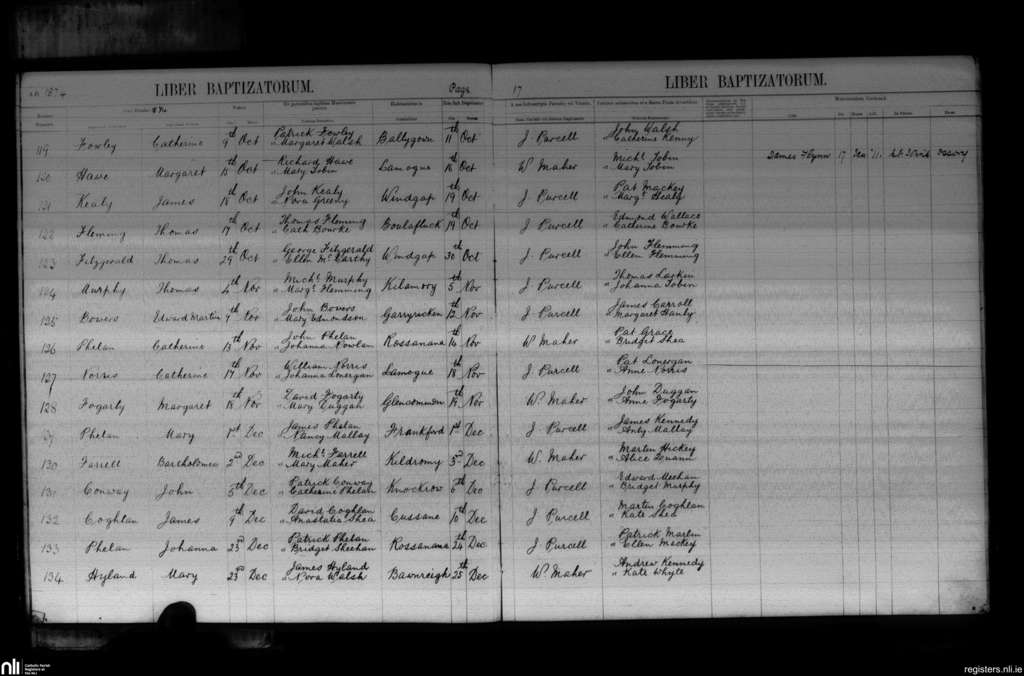 LIBER BAPTIZATORUM. Page 17 LIBER BAPTIZATORUM.
119 Fowley Catherine 9th Oct Patrick Fowley Ballygown 11th Oct J Purcell John Walsh
" Margaret Walsh " Catherine Kenny
120 Hawe Margaret 15th Oct Richard Hawe Lamogue 16th Oct W Maher Michl Tobin James Flynn 17 11
" Mary Tobin " Mary Tobin
121 Kealy James 18th Oct John Kealy Windgap 19th Oct J. Purcell Pat Mackey
" Nora Greeny " Margt Healy
122 Fleming Thomas 17th Oct Thomas Fleming Coulafluck 19th Oct J. Purcell Edmond Wallace
" Cath Bowrke " Catherine Bowrke
123 Fitzgerald Thomas 29th Oct George Fitzgerald Windgap 30th Oct J. Purcell John Flemming
" Ellen McCarthy " Ellen Flemming
124 Murphy Thomas 4th Nov Michl Murphy Kilamory 5th Nov J Purcell Thomas Larkin
" Margt Flemming " Johanna Tobin
125 Bowers Edward Martin 9th Nov John Bowers Garryricken 12th Nov J Purcell James Carroll
" Mary Edmondson " Margaret Hanly
126 Phelan Catherine 13th Nov John Phelan Rossanana 16th Nov W Maher Pat Grace
" Johanna Nowlan " Bridget Shea
127 Norris Catherine 17th Nov William Norris Lamogue 18th Nov J. Purcell Pat Lonergan
" Johanna Lonergan " Anne Norris
128 Fogarty Margaret 18th Nov David Fogarty Glencommon 19th Nov W. Maher John Duggan
" Mary Duggan " Anne Fogarty
129 Phelan Mary 1st Dec James Phelan Frankford 1st Dec J Purcell James Kennedy
" Nancy Mallay " Anty Mallay
130 Farrell Bartholomew 2nd Dec Michl Farrell Kildromy 3rd Dec W. Maher Martin Hickey
" Mary Maher " Alice
131 Conway John 5th Dec Patrick Conway Knockrow 6th Dec J Purcell Edward Meehan
" Catherine Phelan " Bridget Murphy
132 Coghlan James 9th Dec David Coghlan Cussane 10th Dec J Purcell Martin Coghlan
" Anastatia Shea " Kate Shea
133 Phelan Johanna 23rd Dec Patrick Phelan Rossanana 24th Dec J Purcell Patrick Martin
" Bridget Sheehan " Ellen Mackey
134 Hyland Mary 23rd Dec James Hyland Bawnreigh 25th Dec W. Maher Andrew Kennedy
" Nora Walsh " Kate Whyte
nli Catholic Parish Registers at the NLI
registers.nli.ie